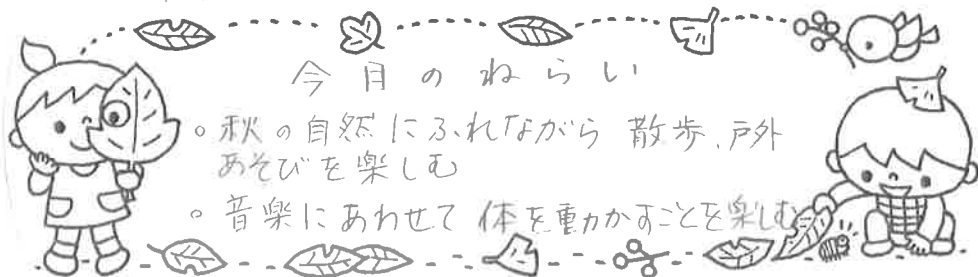 今月のねらい
。秋の自然にふれながら 散歩、戸外
あそびを楽しむ
。音楽にあわせて 体を動かすことを楽しむ